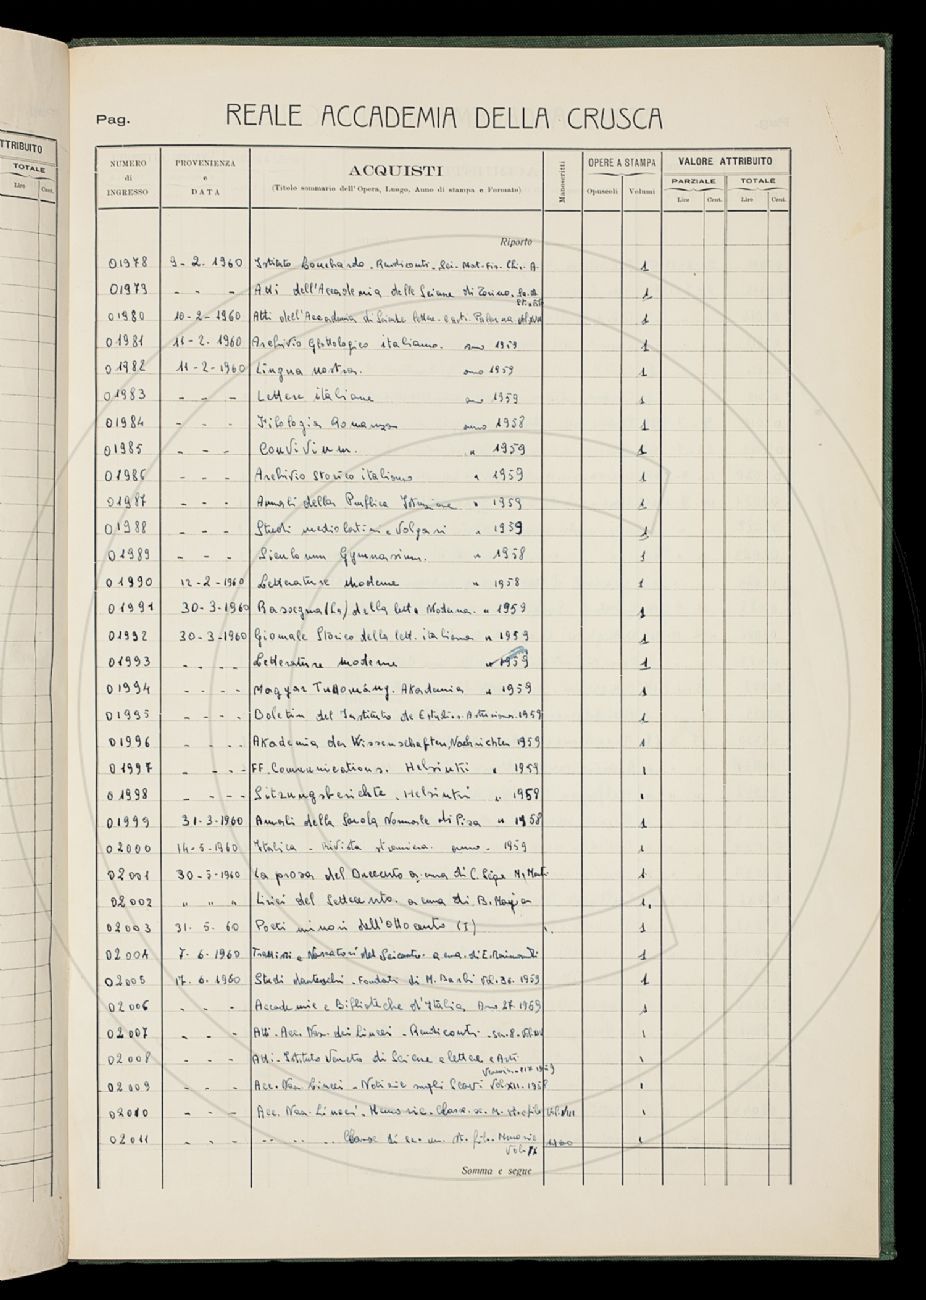 TTRIBUITO
TOTALE
Lire Cent.
Pag. REALE ACCADEMIA DELLA CRUSCA
NUMERO di INGRESSO
PROVENIENZA e DATA
ACQUISTI
(Titolo sommario dell'Opera, Luogo, Anno di stampa e Formato)
Manoscritti
OPERE A STAMPA
Opuscoli Volumi
VALORE ATTRIBUITO
PARZIALE TOTALE
Lire Cent. Lire Cent.
Riporto
01978 9-2.1960 Istituto Lombardo. Rendiconti. Sci. Mat. Fis. Chi. A. 1
01979 - - - Atti dell'Accademia delle Scienze di Torino. 1
01980 10-2-1960 Atti dell'Accademia di Scienze lettere e arti. Palermo 1
01981 11-2.1960 Archivio Glottologico italiano. anno 1959 1
01982 11-2-1960 Lingua nostra. anno 1959 1
01983 - - - Lettere italiane anno 1959 1
01984 - - - Filologia Romanza anno 1958 1
01985 - - - Convivium. " 1959 1
01986 - - - Archivio storico italiano " 1959 1
01987 - - - Annali della Pubblica Istruzione " 1959 1
01988 - - - Studi mediolatini e Volgari " 1959 1
01989 - - - Siculorum Gymnasium. " 1958 1
01990 12-2-1960 Letterature Moderne " 1958 1
01991 30-3-1960 Rassegna (La) della lett. Moderna. " 1959 1
01992 30-3-1960 Giornale Storico della lett. italiana " 1959 1
01993 - - - - Letterature moderne " 1959 1
01994 - - - - Magyar Tudomány. Akademia " 1959 1
01995 - - - - Boletin del Instituto de Estudios Asturianos. 1959 1
01996 - - - - Akademia der Wissenschaften, Nachrichten 1959 1
01997 - - - - FF. Communications. Helsinki " 1959 1
01998 - - - - Sitzungsberichte. Helsinki " 1958 1
01999 31-3-1960 Annali della Scuola Normale di Pisa " 1958 1
02000 14-5-1960 Italica - Rivista straniera. anno - 1959 1
02001 30-5-1960 La prosa del Duecento a cura di C. Segre M. Marti 1
02002 " " " Lirici del Settecento. a cura di B. Maier 1
02003 31. 5. 60 Poeti minori dell'Ottocento (I) 1
02004 7-6-1960 Trattatisti e Narratori del Seicento. a cura. di E. Raimondi 1
02005 17-6-1960 Studi danteschi. Fondati di M. Barbi Vol. 36. 1959 1
02006 - - - Accademie e Biblioteche d'Italia, Anno 27. 1959 1
02007 - - - Atti. Acc. Naz. dei Lincei - Rendiconti - ser. 8. 1
02008 - - - Atti - Istituto Veneto di Scienze e lettere e Arti 1
02009 - - - Acc. Naz. Lincei - Notizie sugli Scavi Vol. XII. 1958 1
02010 - - - Acc. Naz. Lincei. Memorie. Classe. sc. M. 1
02011 - - - " " " Classe di sc. m. st. filo. Memorie 1960 1
Vol. IX
Somma e segue